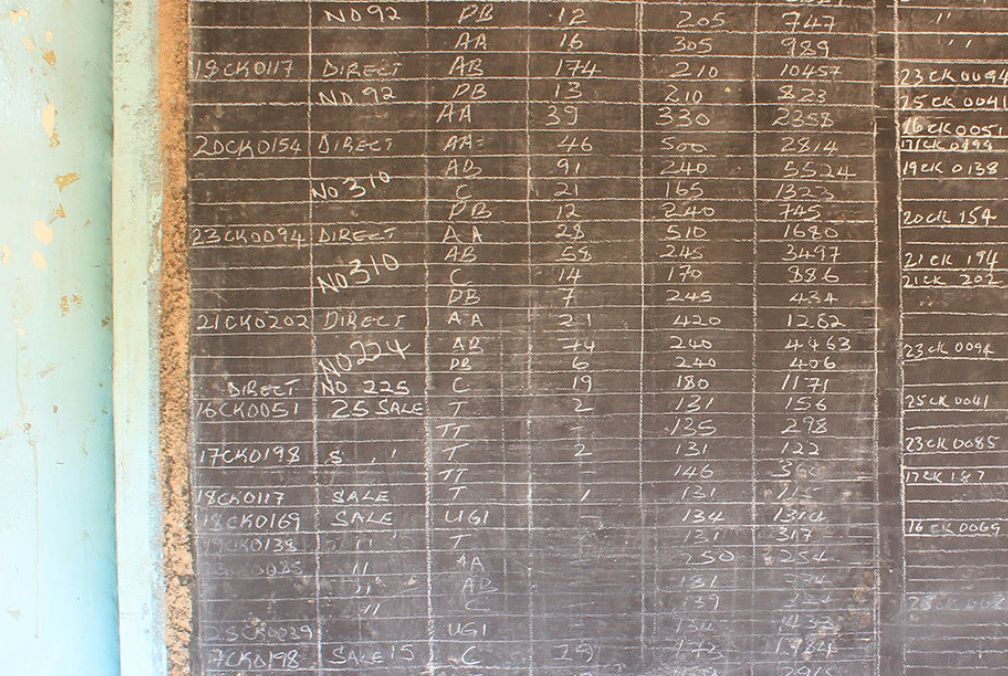 NO 92 PB 12 205 747 "
AA 16 305 989 "
18CK0117 DIRECT AB 174 210 10457 23CK009
NO. 92 PB 13 210 823 25CK 004
AA 39 330 2358 16CK005
20CK0154 DIRECT AA= 46 500 2814
AB 91 240 5524 19CK 0138
NO 310 C 21 165 1323
PB 12 240 745 20CK 154
23CK0094 DIRECT AA 28 510 1680
AB 58 245 3497 21CK 194
NO 310 C 14 170 886 21CK 202
PB 7 245 434
21CK0202 DIRECT AA 21 420 1282
NO 224 AB 74 240 4463 23CK 0094
PB 6 240 406
DIRECT NO 225 C 19 180 1171
16CK0051 25 SALE T 2 131 156 25CK 0041
TT - 135 298
17CK0198 S " T 2 131 122 23CK 0085
TT - 146
18CK0117 SALE T 1 131 17CK 187
18CK0169 SALE UGI - 134 1314 16CK 0069
CK0138 " T - 131 317
" AA 250 254
" AB - 131
" C - 139
23CK0039 UGI - 134
17CK0198 SALE 15 C 29 172